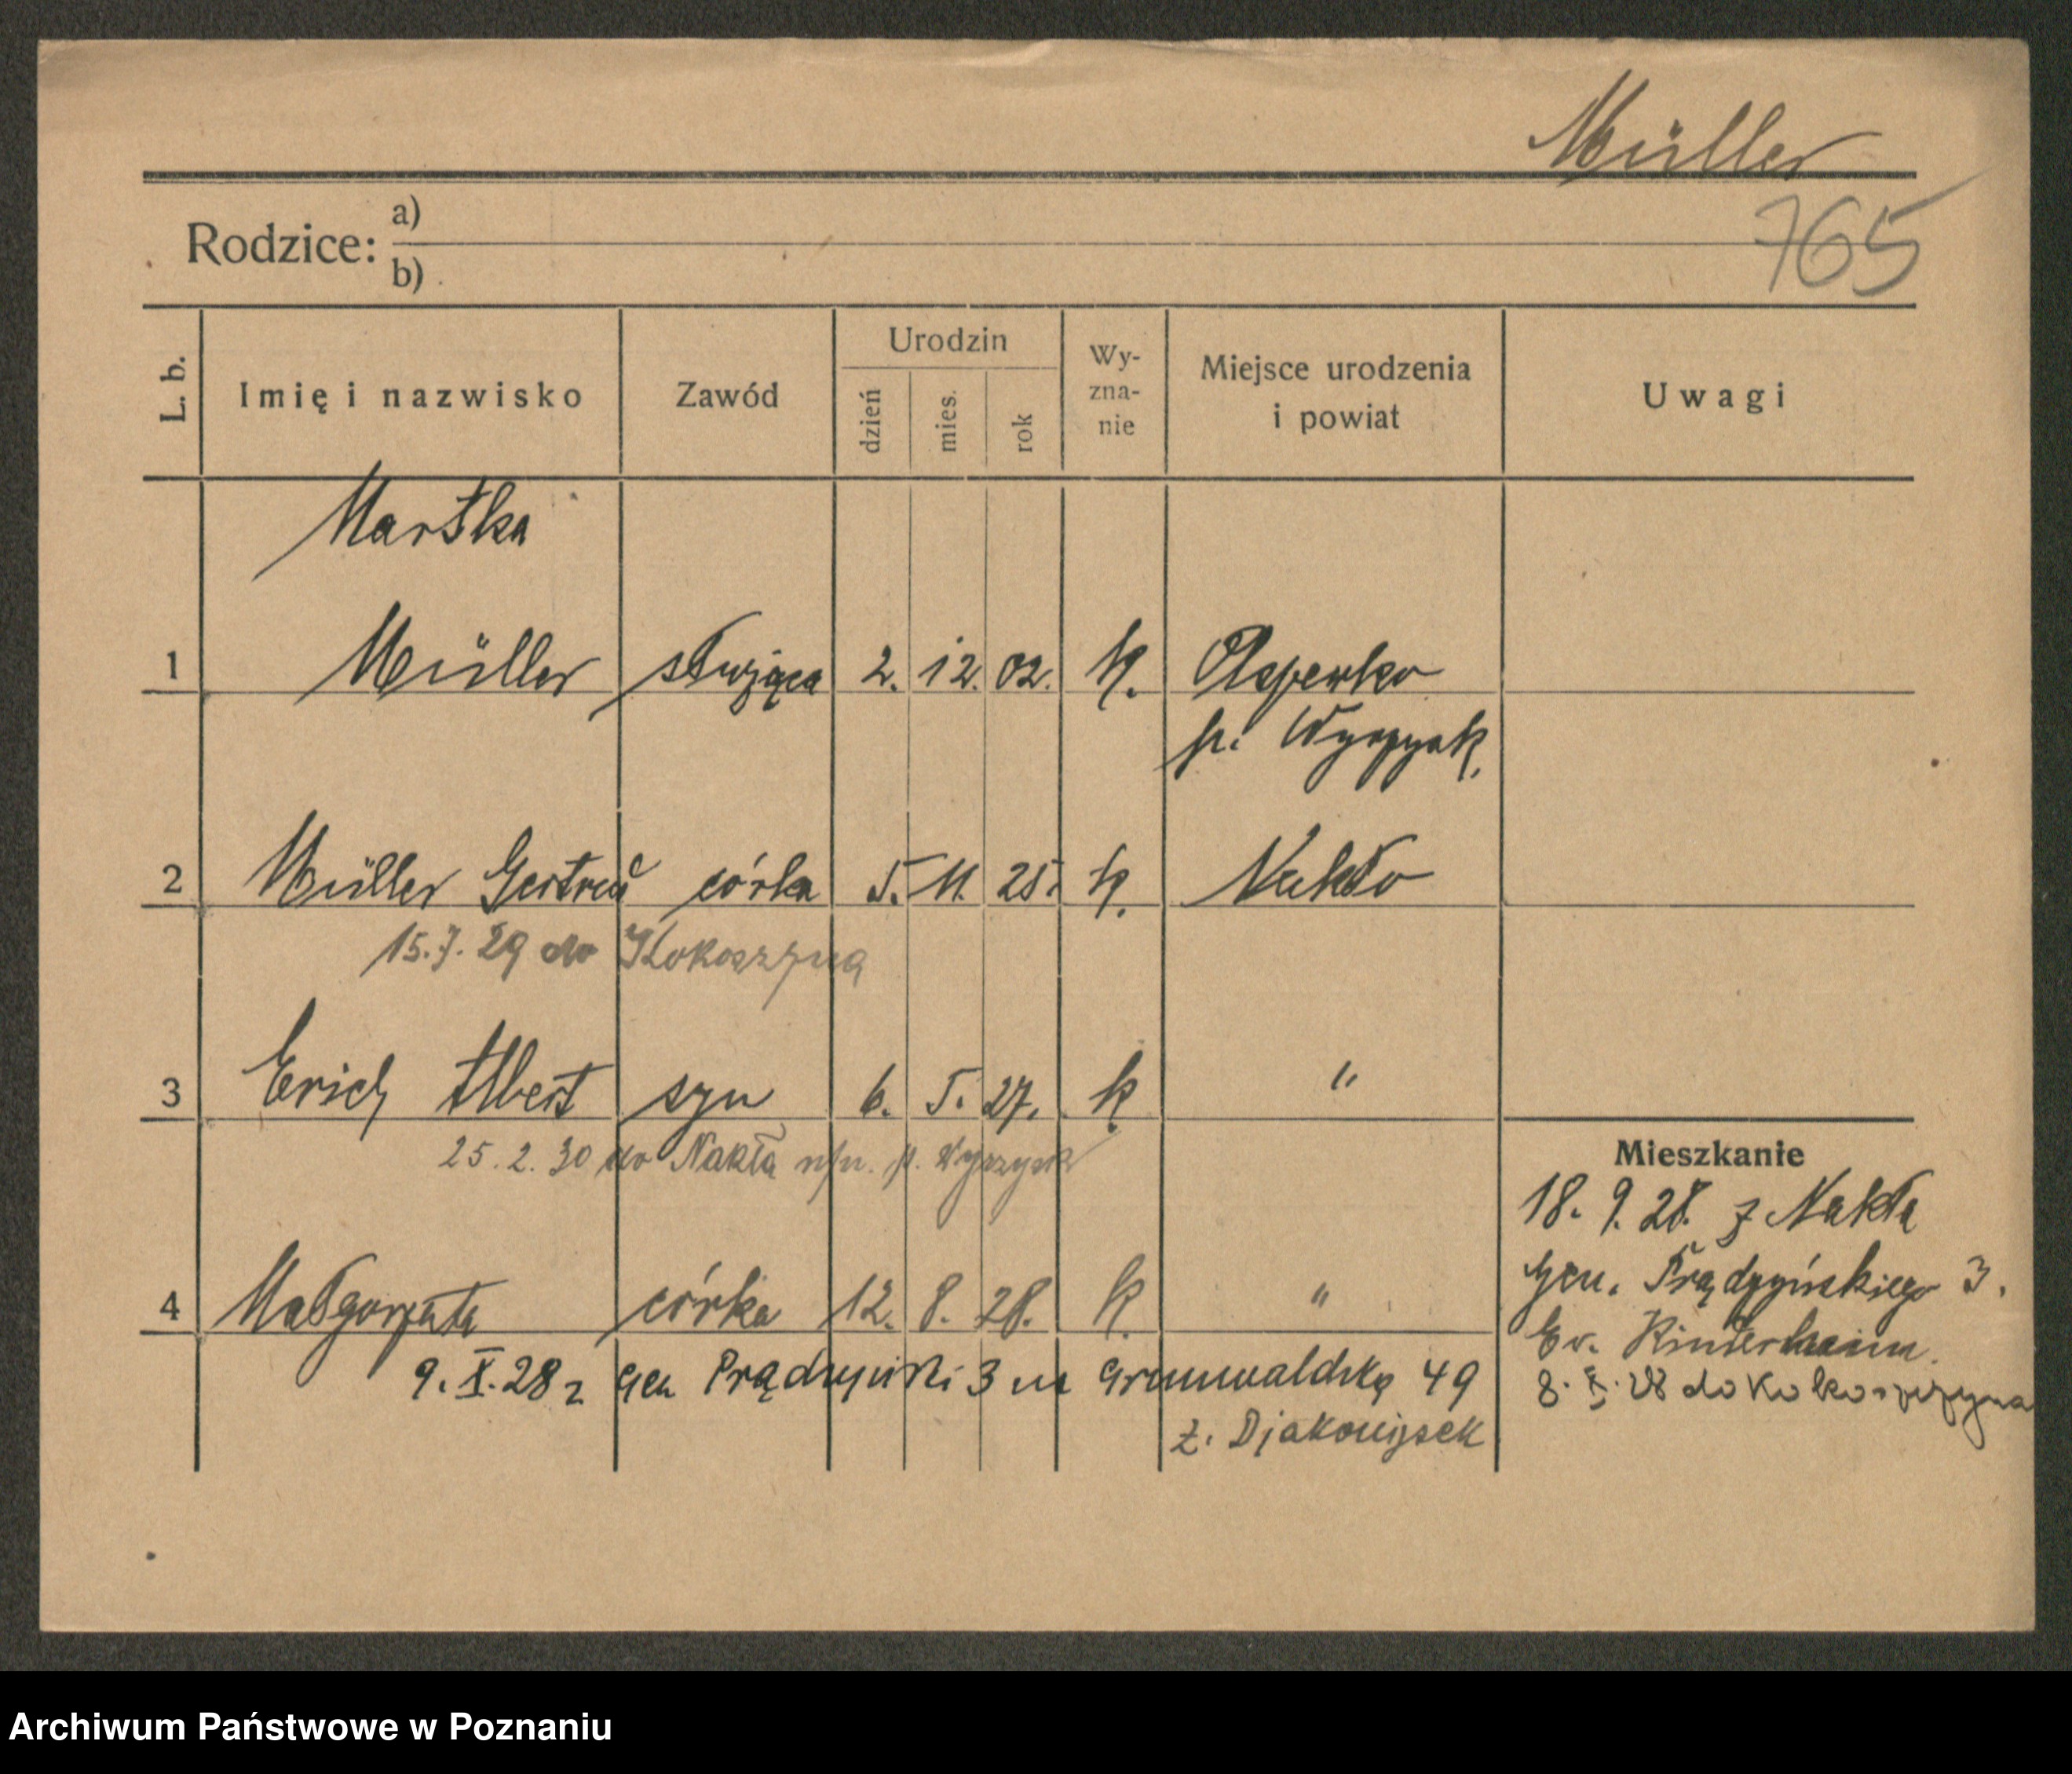 Müller
765
Rodzice: a)
b)
L. b. Imię i nazwisko Zawód Urodzin dzień mies. rok Wy- zna- nie Miejsce urodzenia i powiat Uwagi
Martka
1 Müller służąca 2. 12. 02. k.
p. Wyrzysk
2 Müller Gertrud córka 5. 11. 25. k. Nakło
15.7.29 do Kokoszyna
3 Erich Albert syn 6. 5. 27. k "
25.2.30 do Nakła n/n. p. Wyrzysk
4 Małgorzata córka 12. 8. 28. k. "
9.X.28 z Gen Prądzyński 3 na Grunwaldzką 49
z. Djakonisek
Mieszkanie
18. 9. 28. z Nakła
Gen. Prądzyńskiego 3.
Ev. Kinderheim.
8. X. 28 do Kokoszyna
Archiwum Państwowe w Poznaniu